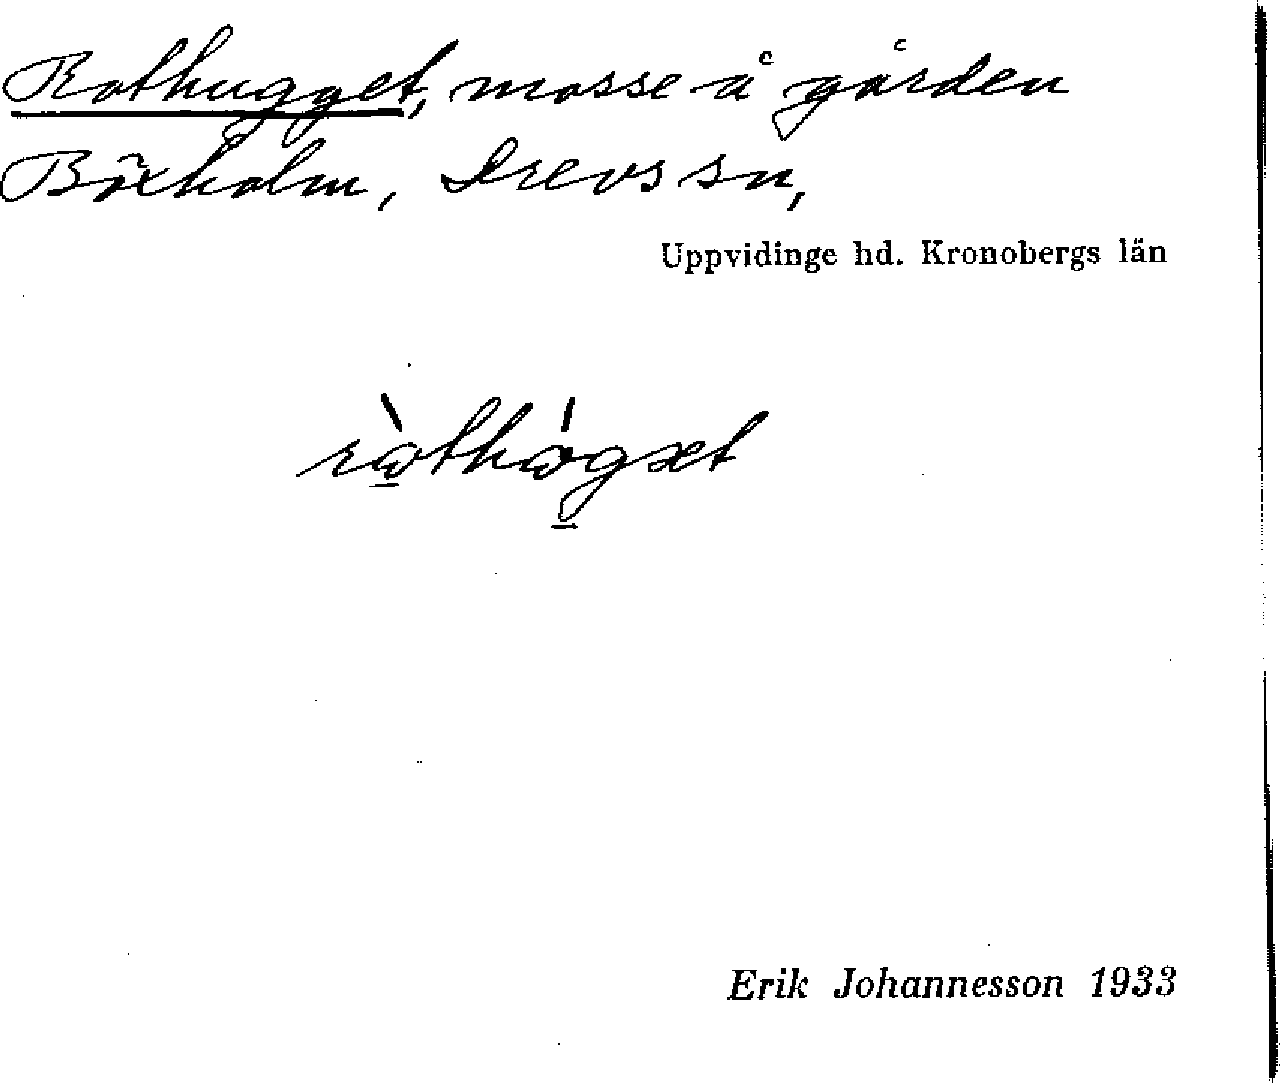 Rothugget, mosse å gården
Böxholm, Drevs sn,
Uppvidinge hd. Kronobergs län
ròthógæt
Erik Johannesson 1933